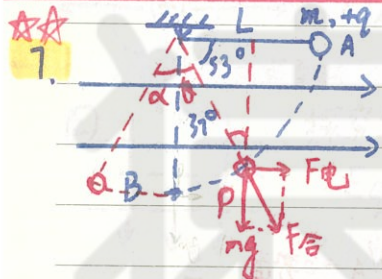 7.
L
m, +q
53°
A
α
θ
37°
B
P
F电
mg
F合